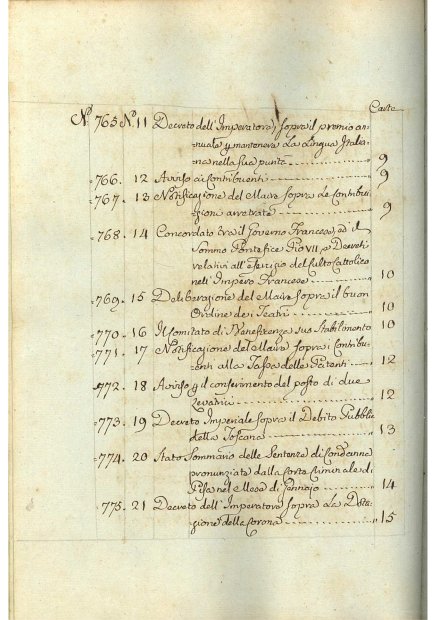 Carte
Nº 765 Nº 11 Decreto dell'Imperatore sopra il premio an=
nuale p mantenere La Lingua Italia=
na nella sua purità 9
766. 12 Avviso ai Contribuenti 9
767. 13 Notificazione del Maire sopra Le Contribu=
zioni arretrate 9
768. 14 Concordato tra il Governo Francese, ed il
Sommo Pontefice Pio VII, e Decreti
relativi all'esercizio del Culto Cattolico
nell'Impero Francese 10
769. 15 Deliberazione del Maire sopra il buon
Ordine dei Teatri 10
770. 16 Il Comitato di Beneficenza sus Stabilimento 10
771. 17 Notificazione del Maire sopra i Contribu=
enti alla Tassa delle Patenti 12
772. 18 Avviso p il conferimento del posto di due
Levatrici 12
773. 19 Decreto Imperiale sopra il Debito Pubblic
della Toscana 13
774. 20 Stato Sommario delle Sentenze di Condanne
pronunziate dalla Corte Criminale di
Pisa nel Mese di Gennajo 14
775. 21 Decreto dell'Imperatore sopra La Dota=
zione della Corona 15